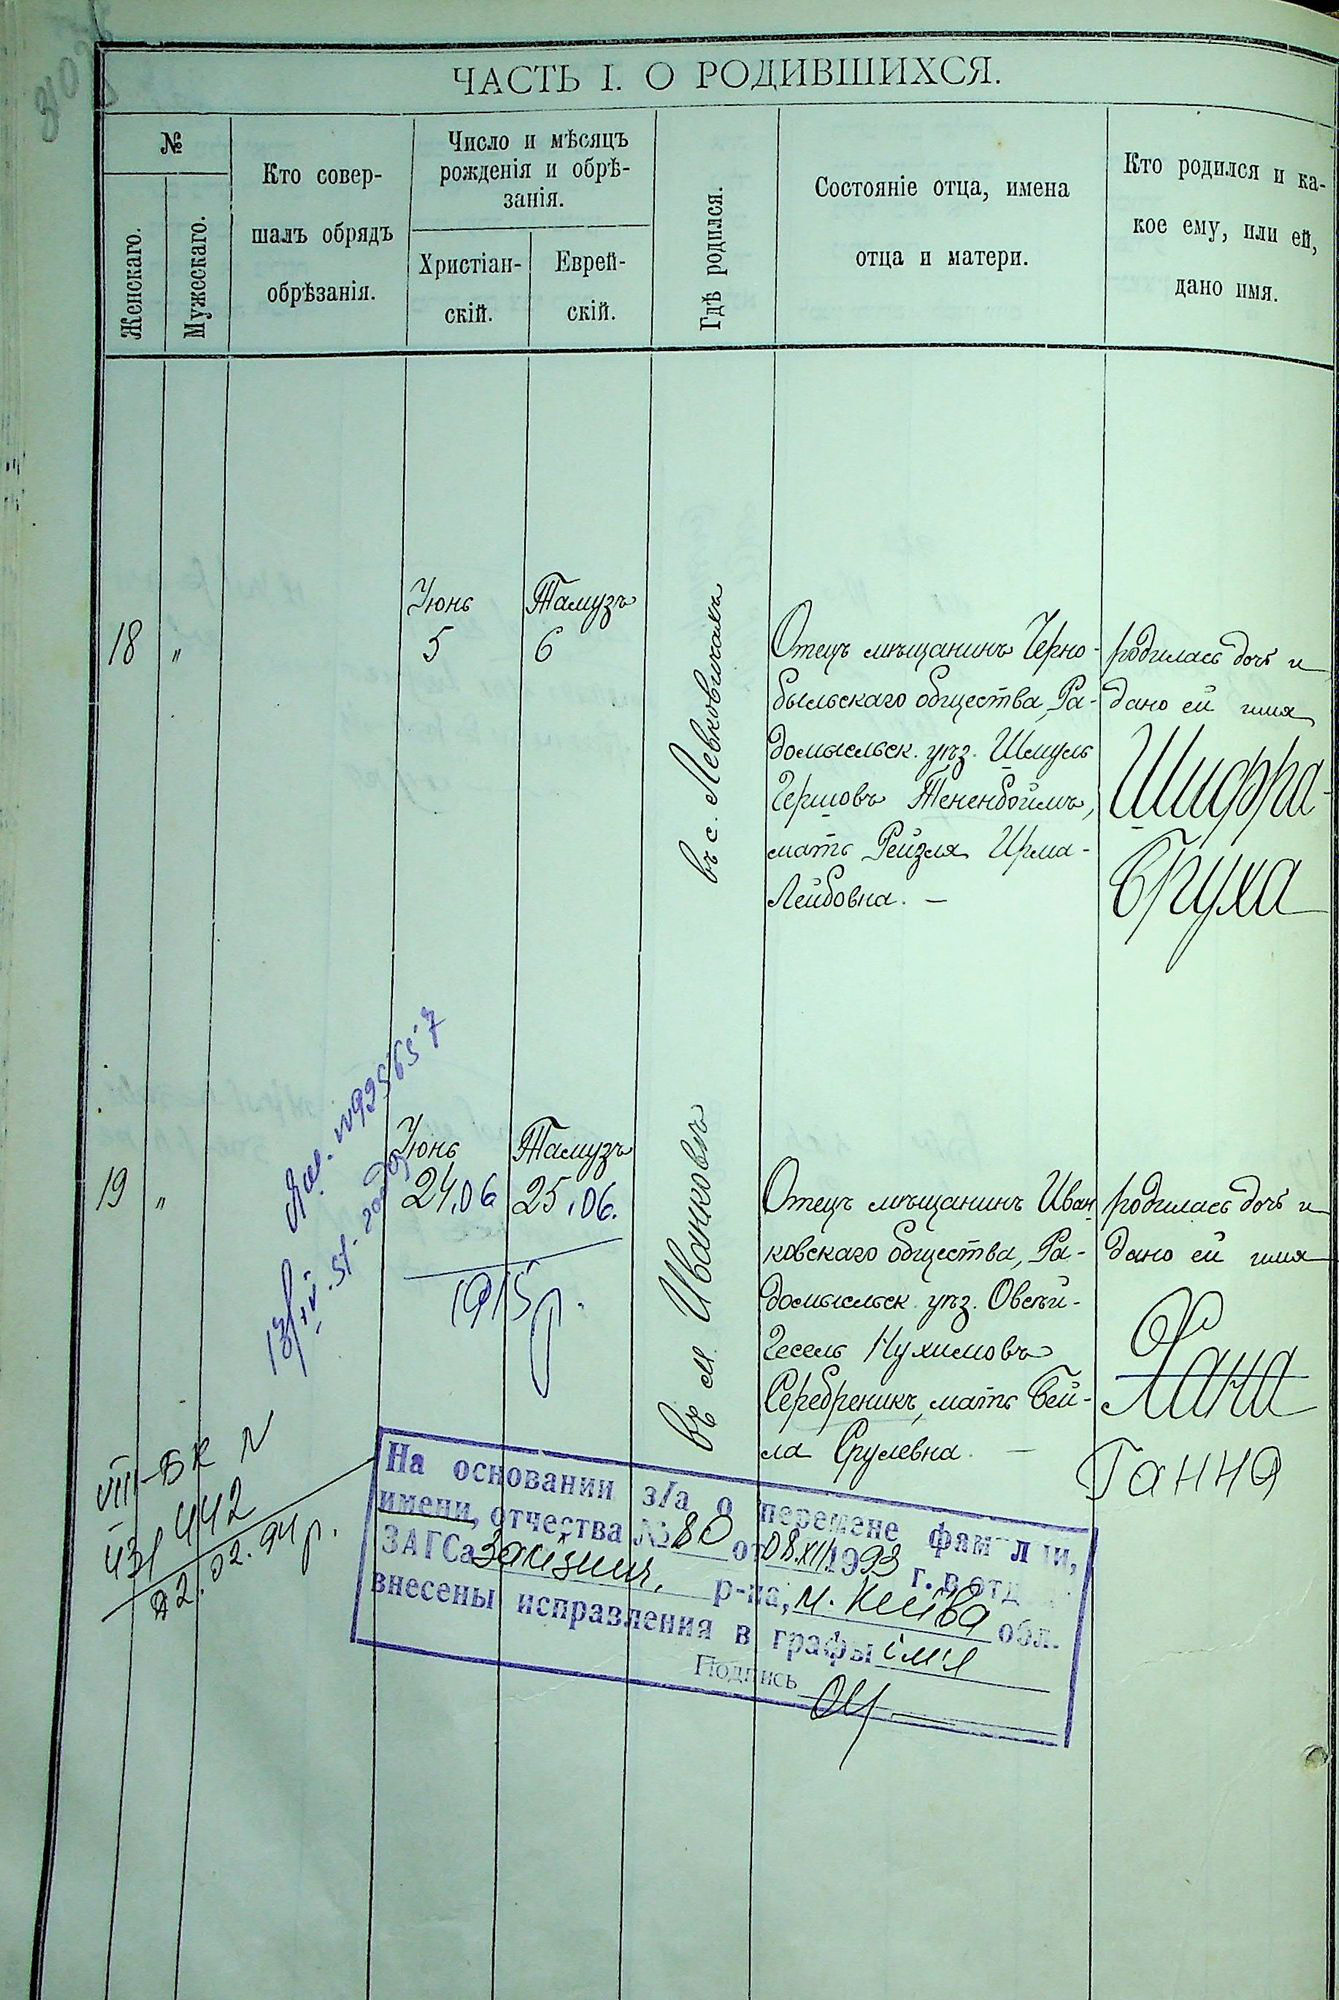 ЧАСТЬ I. О РОДИВШИХСЯ.
№
Женскаго.
Мужескаго.
Кто совер-
шалъ обрядъ
обрѣзанія.
Число и мѣсяцъ
рожденія и обрѣ-
занія.
Христіан-
скій.
Еврей-
скій.
Гдѣ родился.
Состояніе отца, имена
отца и матери.
Кто родился и ка-
кое ему, или ей,
дано имя.
18 "
Іюнь
5
Тамузъ
6
въ с. Левковичахъ
Отецъ мѣщанинъ Черно-
быльскаго общества, Ра-
домысльск. уѣз. Шмуль
Гершовъ Тененбоймъ,
мать Рейзля Ирма-
Лейбовна. —
родилась дочь и
дано ей имя
Шифра-
Бруха
19 "
Іюнь
24.06
Тамузъ
25.06.
1915 р.
въ м. Иванковъ
Отецъ мѣщанинъ Иван-
ковскаго общества, Ра-
домысльск. уѣз. Овсѣй-
Гесель Нухимовъ
Серебреникъ, мать Бей-
ла Срулевна. —
родилась дочь и
дано ей имя
Хана
Ганна
№925657
VIII-БК №
431442
22.02.94р.
На основании з/а о перемене фамилии,
имени, отчества № 80 от 08.XII 1993 г. в отд
ЗАГСа Залізнич. р-на, м. Київа обл.
внесены исправления в графы ім'я
Подпись